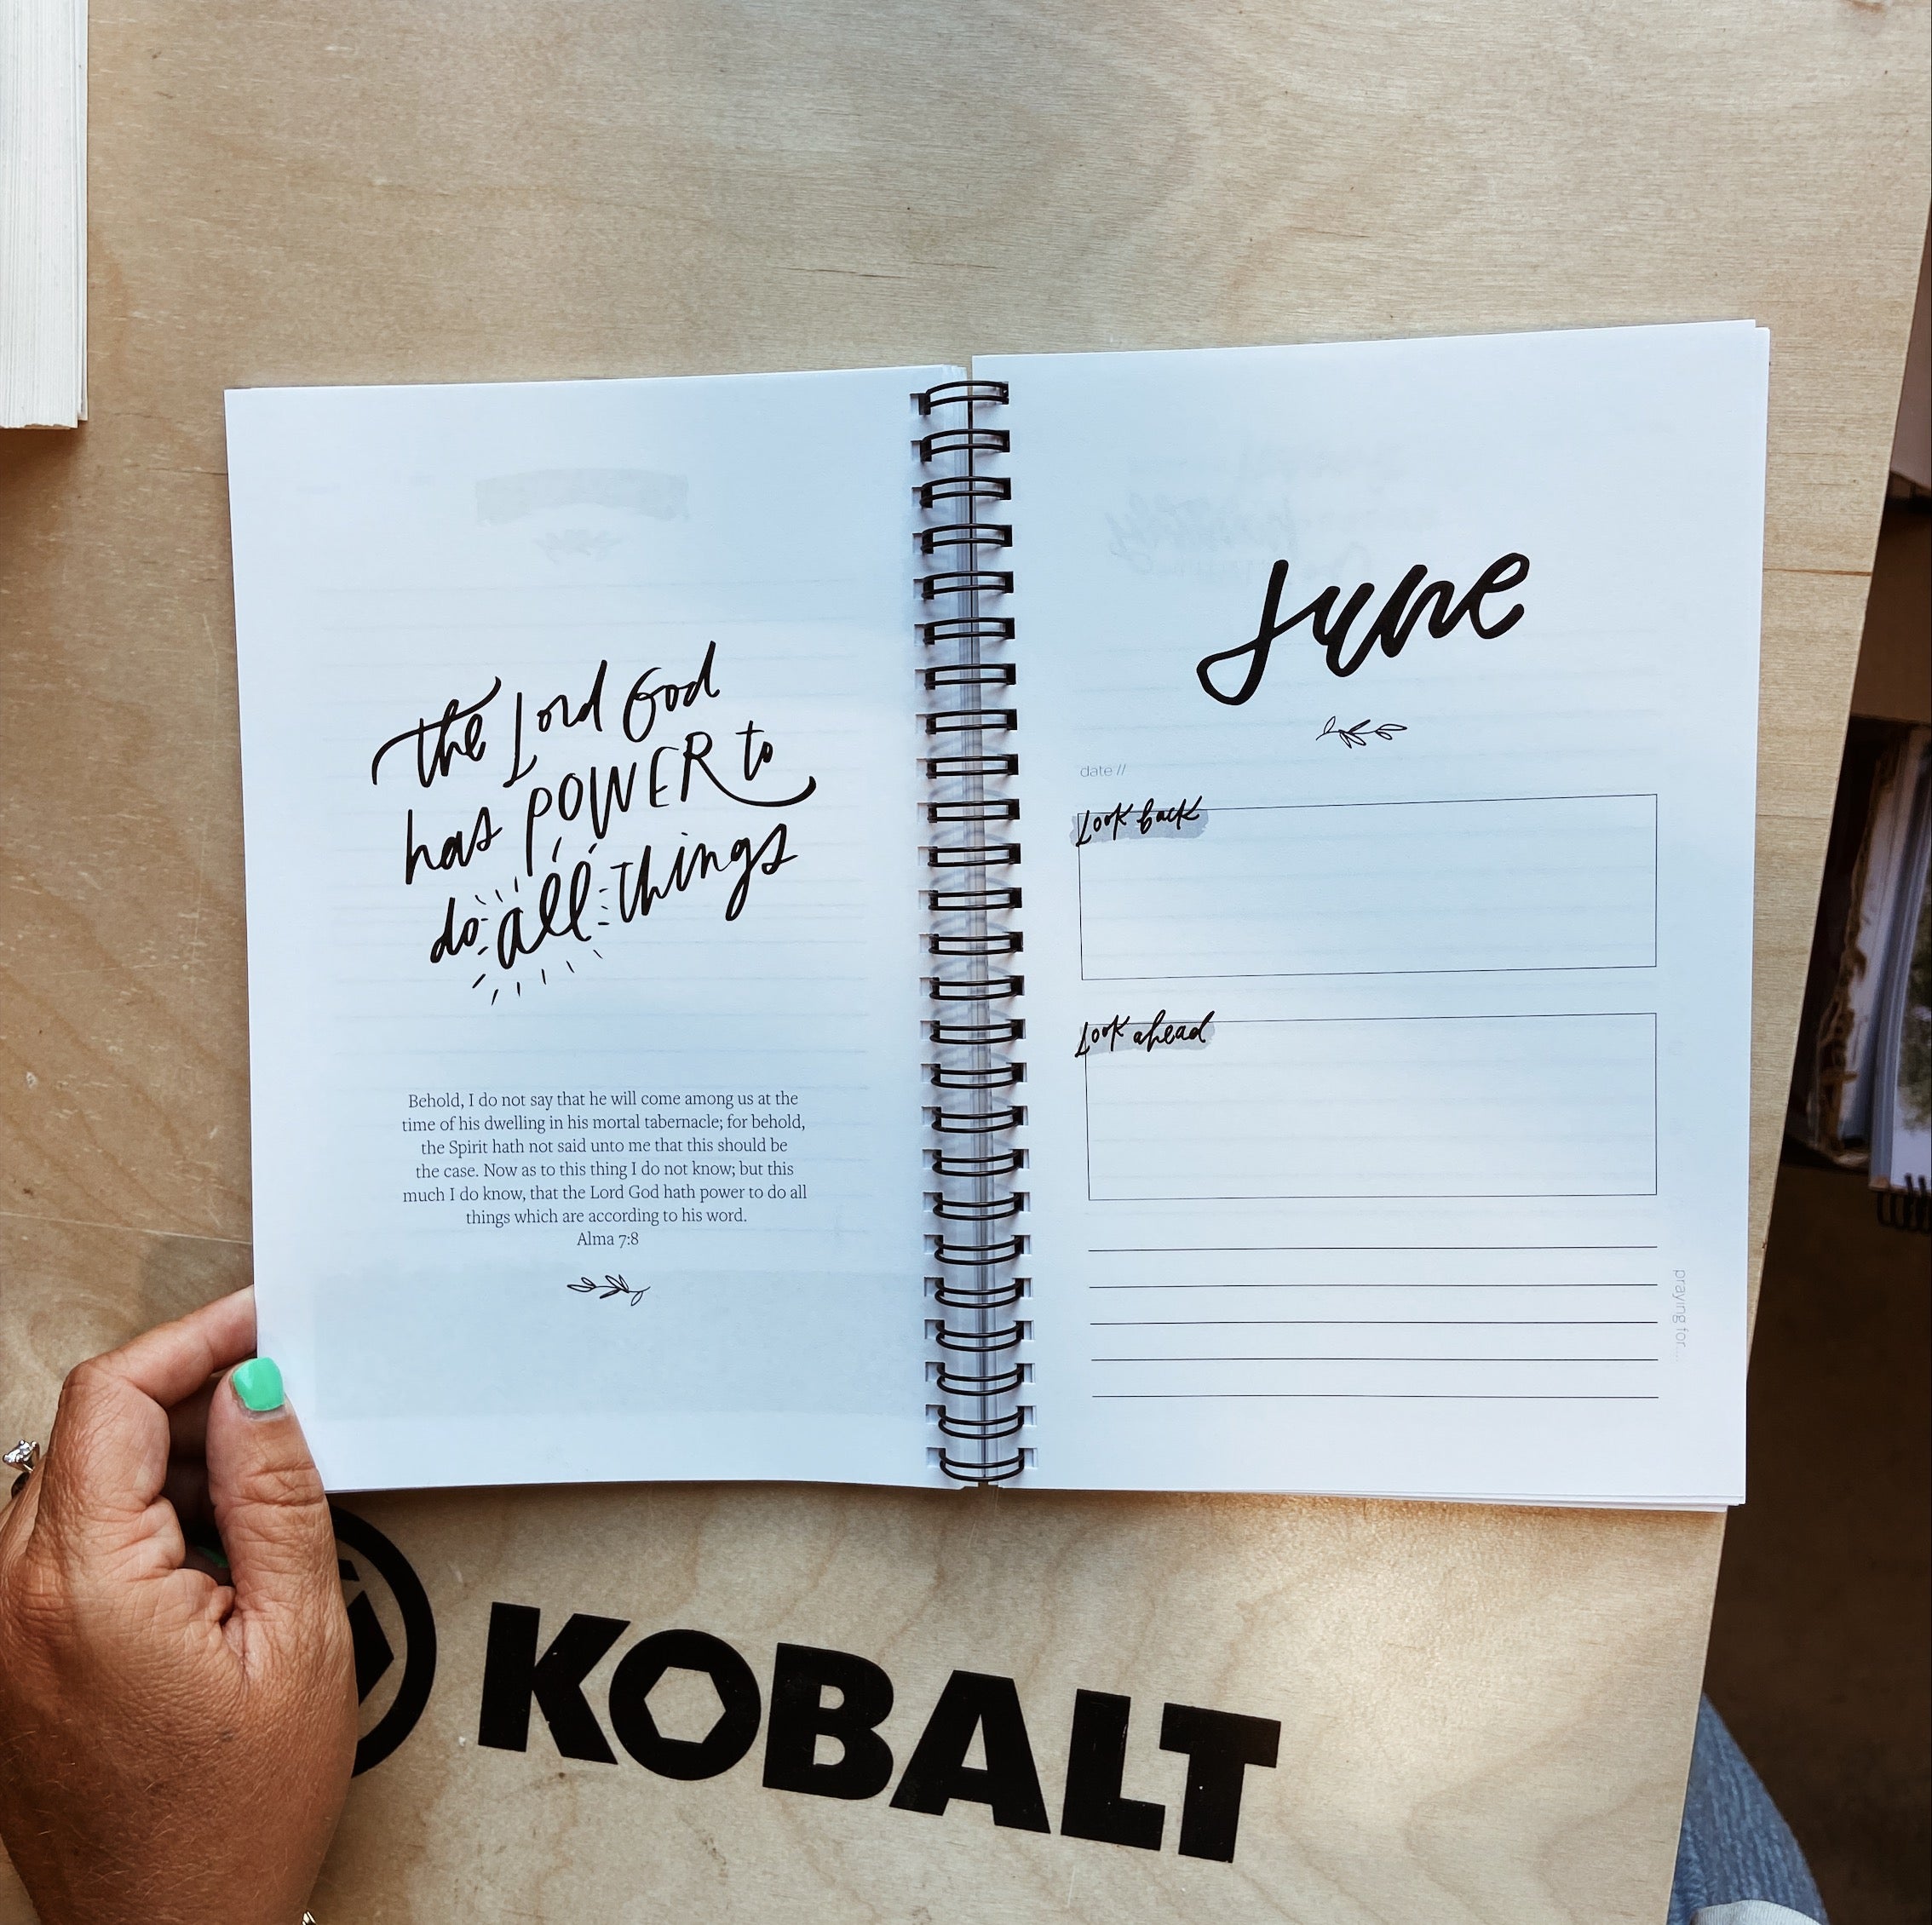 the Lord God
has POWER to
do all things
Behold, I do not say that he will come among us at the
time of his dwelling in his mortal tabernacle; for behold,
the Spirit hath not said unto me that this should be
the case. Now as to this thing I do not know; but this
much I do know, that the Lord God hath power to do all
things which are according to his word.
Alma 7:8
June
date //
Look back
Look ahead
praying for...
KOBALT